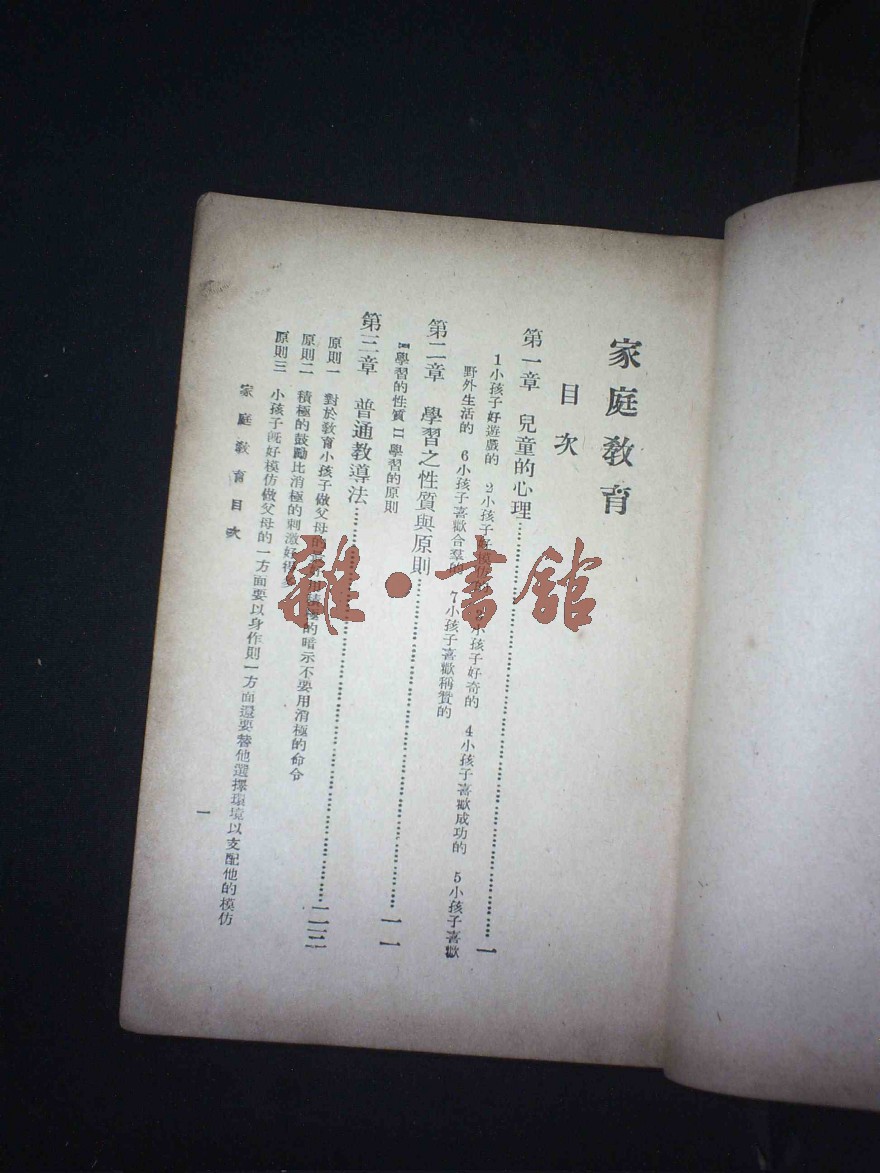 家庭教育
目次
第一章 兒童的心理……一
1小孩子好遊戲的 2小孩子好模仿的 3小孩子好奇的 4小孩子喜歡成功的 5小孩子喜歡
野外生活的 6小孩子喜歡合羣的 7小孩子喜歡稱贊的
第二章 學習之性質與原則……一一
I學習的性質 II學習的原則
第三章 普通教導法……二三
原則一 對於教育小孩子做父母的 用積極的暗示不要用消極的命令
原則二 積極的鼓勵比消極的刺激好得
原則三 小孩子旣好模仿做父母的一方面要以身作則一方面還要替他選擇環境以支配他的模仿
家庭教育目次
一
雜·書館